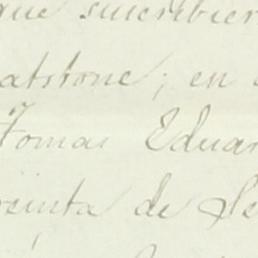 que suscribier
atstone; en
Tomas Eduar
reinta de Se